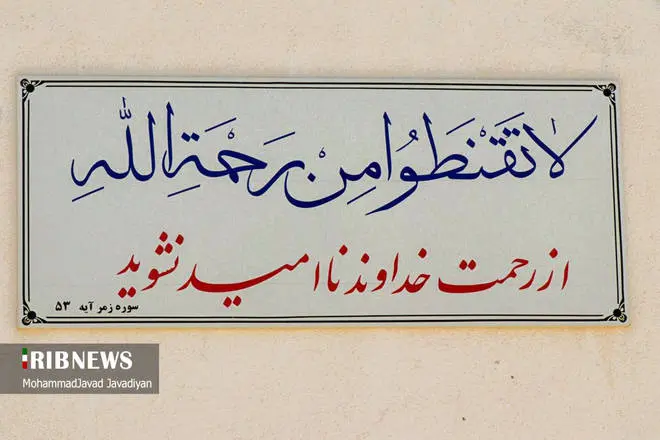 لَا تَقْنَطُوا مِنْ رَحْمَةِ اللّٰهِ
از رحمت خداوند ناامید نشوید
سوره زمر آیه ۵۳
IRIBNEWS
MohammadJavad Javadiyan